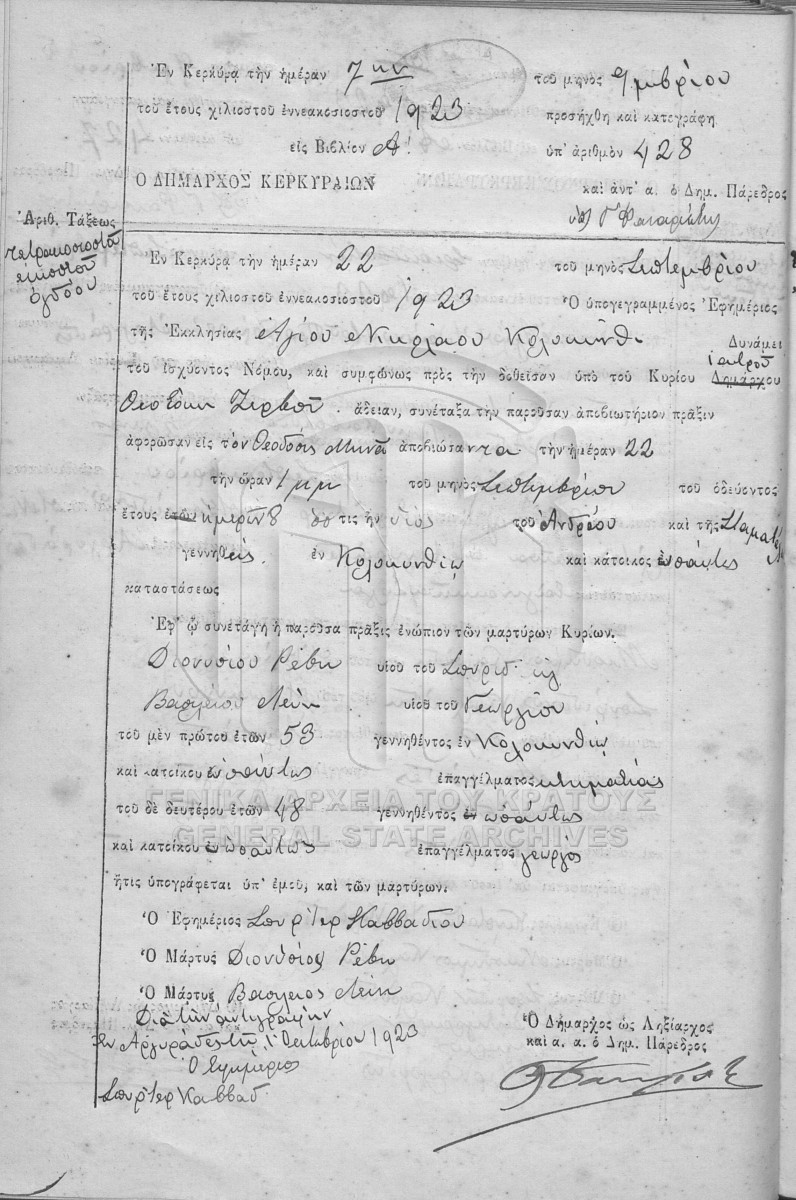 Ἐν Κερκύρᾳ τὴν ἡμέραν 7ην τοῦ μηνὸς 9μβρίου
τοῦ ἔτους χιλιοστοῦ ἐννεακοσιοστοῦ 1923 προσήχθη καὶ κατεγράφη
εἰς Βιβλίον Α! ὑπ' ἀριθμὸν 428
Ὁ ΔΗΜΑΡΧΟΣ ΚΕΡΚΥΡΑΙΩΝ
καὶ ἀντ' α. ὁ Δημ. Πάρεδρος
Ἀριθ. Τάξεως
τετρακοσιοστὸν
εἰκοστοῦ
ὀγδόου
Ἐν Κερκύρᾳ τὴν ἡμέραν 22 τοῦ μηνὸς Σεπτεμβρίου
τοῦ ἔτους χιλιοστοῦ ἐννεακοσιοστοῦ 1923 Ὁ ὑπογεγραμμένος Ἐφημέριος
τῆς Ἐκκλησίας Ἁγίου Νικολάου Κολοκύνθι Δυνάμει
ἰατροῦ
τοῦ ἰσχύοντος Νόμου, καὶ συμφώνως πρὸς τὴν δοθεῖσαν ὑπὸ τοῦ Κυρίου Δημάρχου
Θεοτόκη Ζερβοῦ. ἄδειαν, συνέταξα τὴν παροῦσαν ἀποβιωτήριον πρᾶξιν
ἀφορῶσαν εἰς τὸν Θεοδόση Μηνᾶ ἀποβιώσαντα τὴν ἡμέραν 22
τὴν ὥραν 1 μμ τοῦ μηνὸς Σεπτεμβρίου τοῦ ὁδεύοντος
ἔτους ἐτῶν ἡμερῶν 8 ὅστις ἦν υἱὸς τοῦ Ἀνδρέου καὶ τῆς
γεννηθεὶς ἐν Κολοκυνθίῳ καὶ κάτοικος ἐν ὡσαύτως
καταστάσεως
Ἐφ' ᾧ συνετάγη ἡ παροῦσα πρᾶξις ἐνώπιον τῶν μαρτύρων Κυρίων.
Διονυσίου Ρέβη υἱοῦ τοῦ
Βασιλείου Λέκη υἱοῦ τοῦ Γεωργίου
τοῦ μὲν πρώτου ἐτῶν 53 γεννηθέντος ἐν Κολοκυνθίῳ
καὶ κατοίκου ἐν ὡσαύτως ἐπαγγέλματος κτηματίας
ΓΕΝΙΚΑ ΑΡΧΕΙΑ ΤΟΥ ΚΡΑΤΟΥΣ
τοῦ δὲ δευτέρου ἐτῶν 48 γεννηθέντος ἐν ὡσαύτως
GENERAL STATE ARCHIVES
καὶ κατοίκου ἐν ὡσαύτως ἐπαγγέλματος γεωργὸς
ἥτις ὑπογράφεται ὑπ' ἐμοῦ, καὶ τῶν μαρτύρων.
Ὁ Ἐφημέριος Σπυρ Ἱερ Καββαδίου
Ὁ Μάρτυς Διονύσιος Ρέβη
Ὁ Μάρτυς Βασίλειος Λέκη
Διὰ τὴν ἀντιγραφὴν
Ἐν Ἀργυράδες τῇ 1 Ὀκτωβρίου 1923
Ὁ Ἐφημέριος
Σπυρ Ἱερ Καββαδ
Ὁ Δήμαρχος ὡς Ληξίαρχος
καὶ α. α. ὁ Δημ. Πάρεδρος